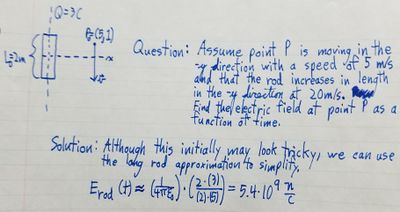 Q=3C
P=(5,1)
L₀=2m
x
v
Question: Assume point P is moving in the
-y direction with a speed of 5 m/s
and that the rod increases in length
in the -y direction at 20m/s.
Find the electric field at point P as a
function of time.
Solution: Although this initially may look tricky, we can use
the long rod approximation to simplify.
E_rod (t) ≈ (1/4πε₀)·(2·(3)/(2)·(5)) = 5.4·10⁹ n/C